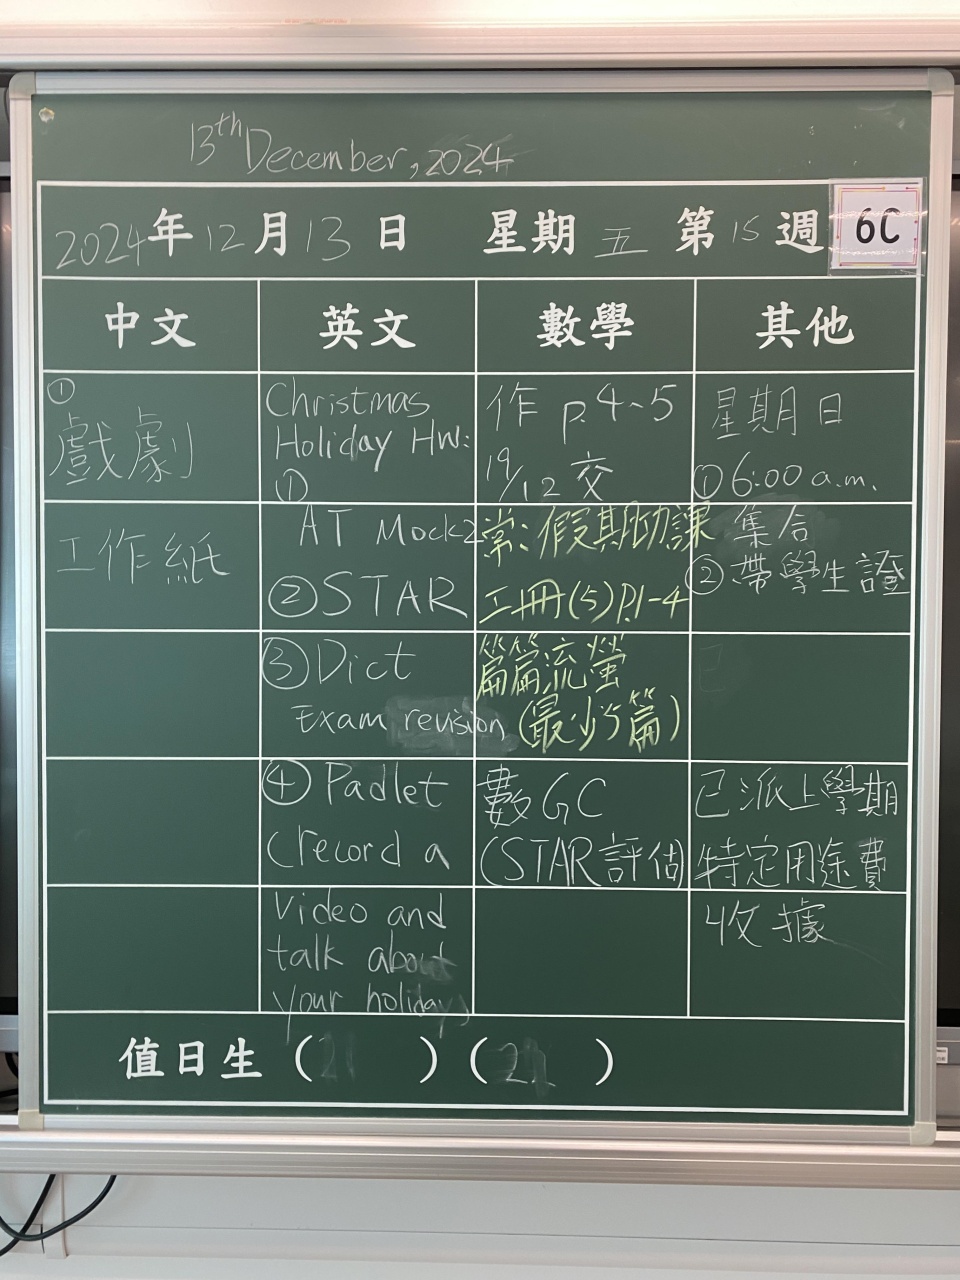 13th December, 2024
2024年12月13日 星期五 第15週 6C
中文 英文 數學 其他
①
戲劇
工作紙
Christmas
Holiday HW:
①
AT Mock2
②STAR
③Dict
Exam revision
④Padlet
(record a
Video and
talk about
your holiday)
作 p.4~5
19/12交
常:假期功課
工冊(5)P.1-4
篇篇流螢
(最少5篇)
數GC
(STAR評估)
星期日
①6:00a.m.
集合
②帶學生證
已派上學期
特定用途費
收據
值日生 (21) (21)